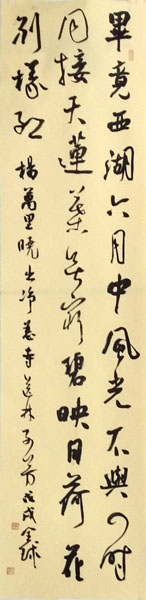 畢竟西湖六月中風光不與四時
同接天蓮葉無窮碧映日荷花
別樣紅 楊萬里曉出淨慈寺送林子方 戊戌